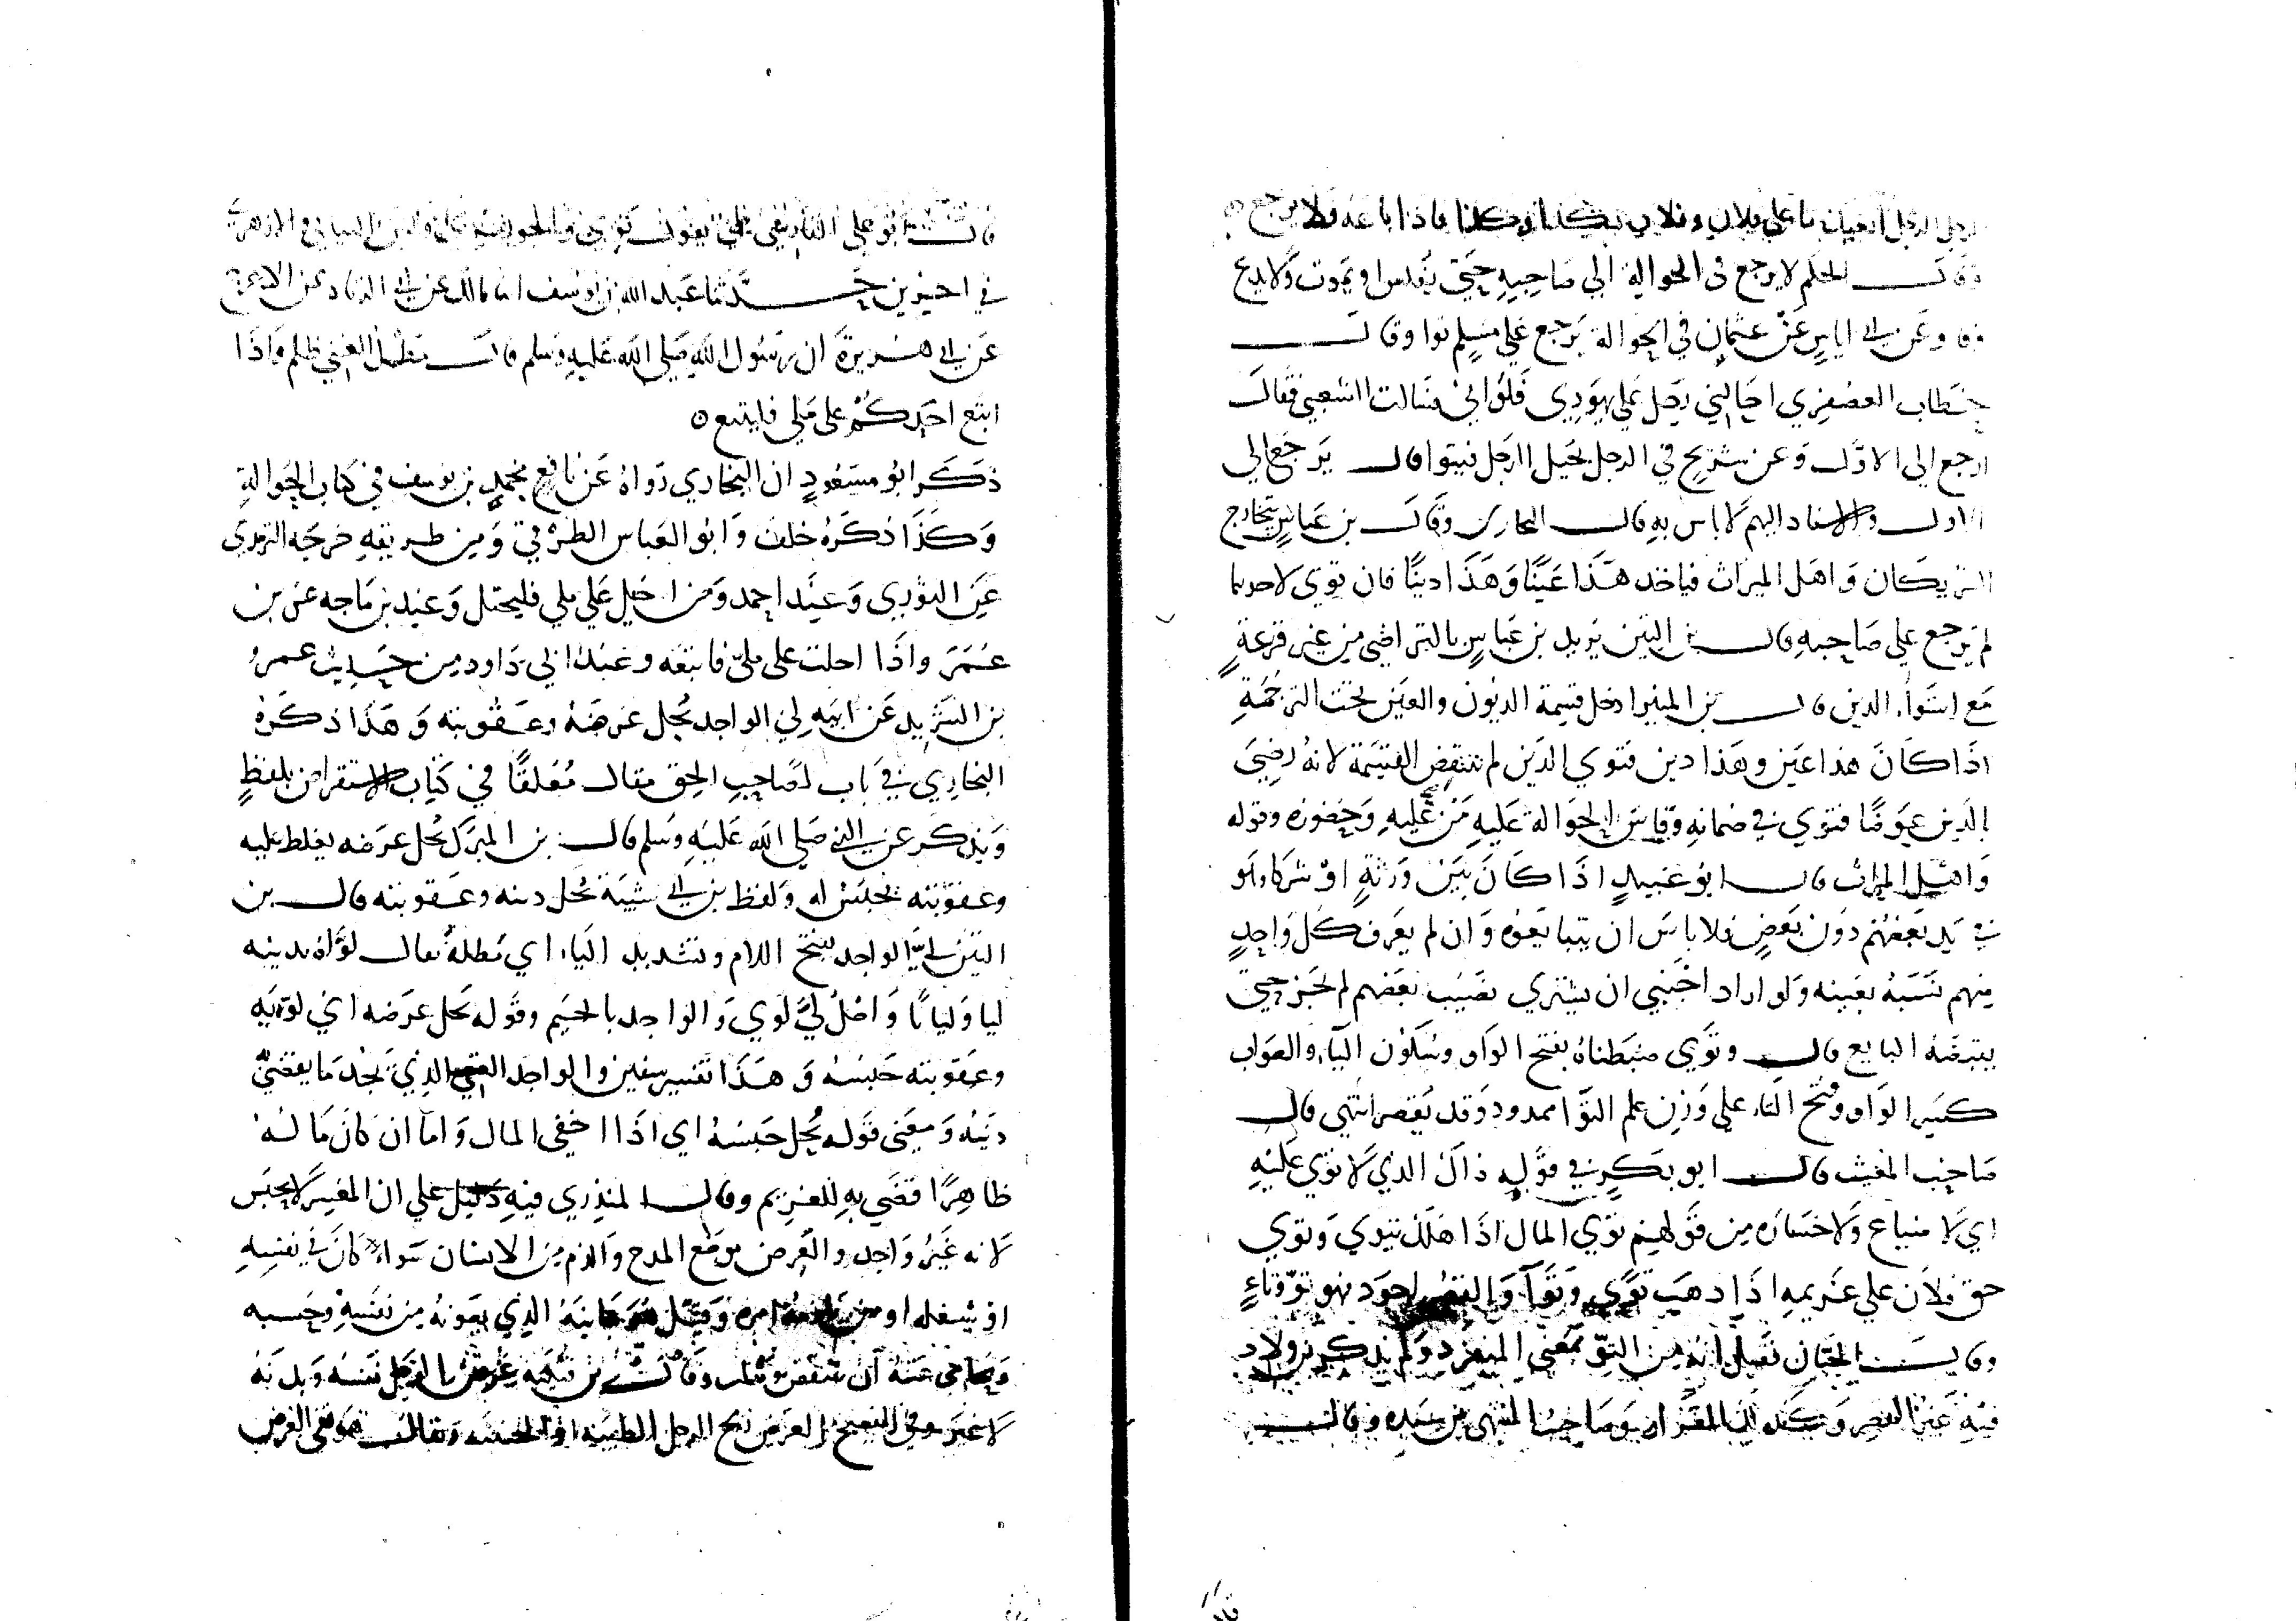 الرجل الرجل ابيعك ما علي فلان وفلان بكذا وكذا فاذا باعه فلا يرجع
وقال الحكم لا يرجع في الحوالة الي صاحبه حتي يفلس او يموت ولا يدع
وعن ابي اياس عن عثمان في الحوالة يرجع علي مسلم توا وقال
خطاب العصفري احالني رجل علي يهودي فلواني فسالت الشعبي فقال
ارجع الي الاول وعن شريح في الرجل يحيل الرجل فيتوا قال يرجع الي
الاول والاسناد اليهم لا باس به قال البخاري وقال بن عباس يتخارج
الشريكان واهل الميراث فياخذ هذا عينا وهذا دينا فان توي لاحدهما
لم يرجع علي صاحبه قال بن التين يريد بن عباس بالتراضي من غير قرعة
مع استواء الدين قال بن المنير ادخل قسمة الديون والعين تحت الترجمة
اذا كان هذا عين وهذا دين فتوي الدين لم تنتقض القسمة لانه رضي
بالدين عوضا فتوي في ضمانه وقاس الحوالة عليه وقوله
واهل الميراث قال ابو عبيد اذا كان بين ورثة او شركاء وهو
في يد بعضهم دون بعض فلا باس ان يتبايعوه وان لم يعرف كل واحد
منهم نسبه بعينه ولو اراد اجنبي ان يشتري نصيب بعضهم لم يجز حتي
يقبضه البايع قال وتوي ضبطناه بفتح الواو وسكون الياء والصواب
كسر الواو وفتح التاء علي وزن علم التوا ممدود وقد يقصر انتهي قال
صاحب المغيث قال ابو بكر في قوله ذاك الذي لا توي عليه
اي لا ضياع ولا خسارة من قولهم توي المال اذا هلك يتوي وتوي
حق فلان علي غريمه اذا ذهب توي وتوا والقصر اجود فهو تو وتاء
وقال اللحيان بمعني المنفرد ولم يذكر بن ولاد
فيه غير القصر وكذلك القزاز وصاحب المنتهي بن سيده وقال
قال ابو علي الفارسي
في اخرين حدثنا عبد الله بن يوسف انا مالك عن ابي الزناد عن الاعرج
عن ابي هريرة ان رسول الله صلي الله عليه وسلم قال مطل الغني ظلم واذا
اتبع احدكم علي ملي فليتبع ه
ذكر ابو مسعود ان البخاري رواه عن نافع محمد بن يوسف في كتاب الحوالة
وكذا ذكره خلف وابو العباس الطرقي ومن طريقه خرجه الترمذي
عن الثوري وعند احمد ومن احيل علي ملي فليحتل وعند بن ماجه عن بن
عمر واذا احلت علي ملئ فاتبعه وعند ابي داود من حديث عمرو
بن الشريد عن ابيه لي الواجد يحل عرضه وعقوبته وهذا ذكره
البخاري في باب لصاحب الحق مقال معلقا في كتاب الاستقراض بلفظ
ويذكر عن النبي صلي الله عليه وسلم قال بن المبرك يحل عرضه يغلظ عليه
وعقوبته يحبس له ولفظ بن ابي شيبة يحل دينه وعقوبته قال بن
التين لي الواجد بفتح اللام وتشديد الياء اي مطله يقال لواه بدينه
ليا وليانا واصل لي لوي والواجد بالجيم وقوله يحل عرضه اي لومه
وعقوبته حبسه وهذا تفسير سفين والواجد الغني الذي يجد ما يقضي
دينه ومعني قوله يحل حبسه اي اذا اخفي المال واما ان كان ماله
ظاهرا قضي به للغريم وقال المنذري فيه دليل علي ان المعسر لا يحبس
لانه غير واجد والعرض موضع المدح والذم من الانسان سواء كان في نفسه
او سلفه او من يلزمه امره وقيل هو جانبه الذي يصونه من نفسه وحسبه
ويحامي عنه ان ينتقص ويثلب وقال بن قتيبه عرض الرجل نفسه وبدنه
لا غير وفي الفصيح العرض ريح الرجل الطيبه او الخبيثه ويقال هو نقي العرض